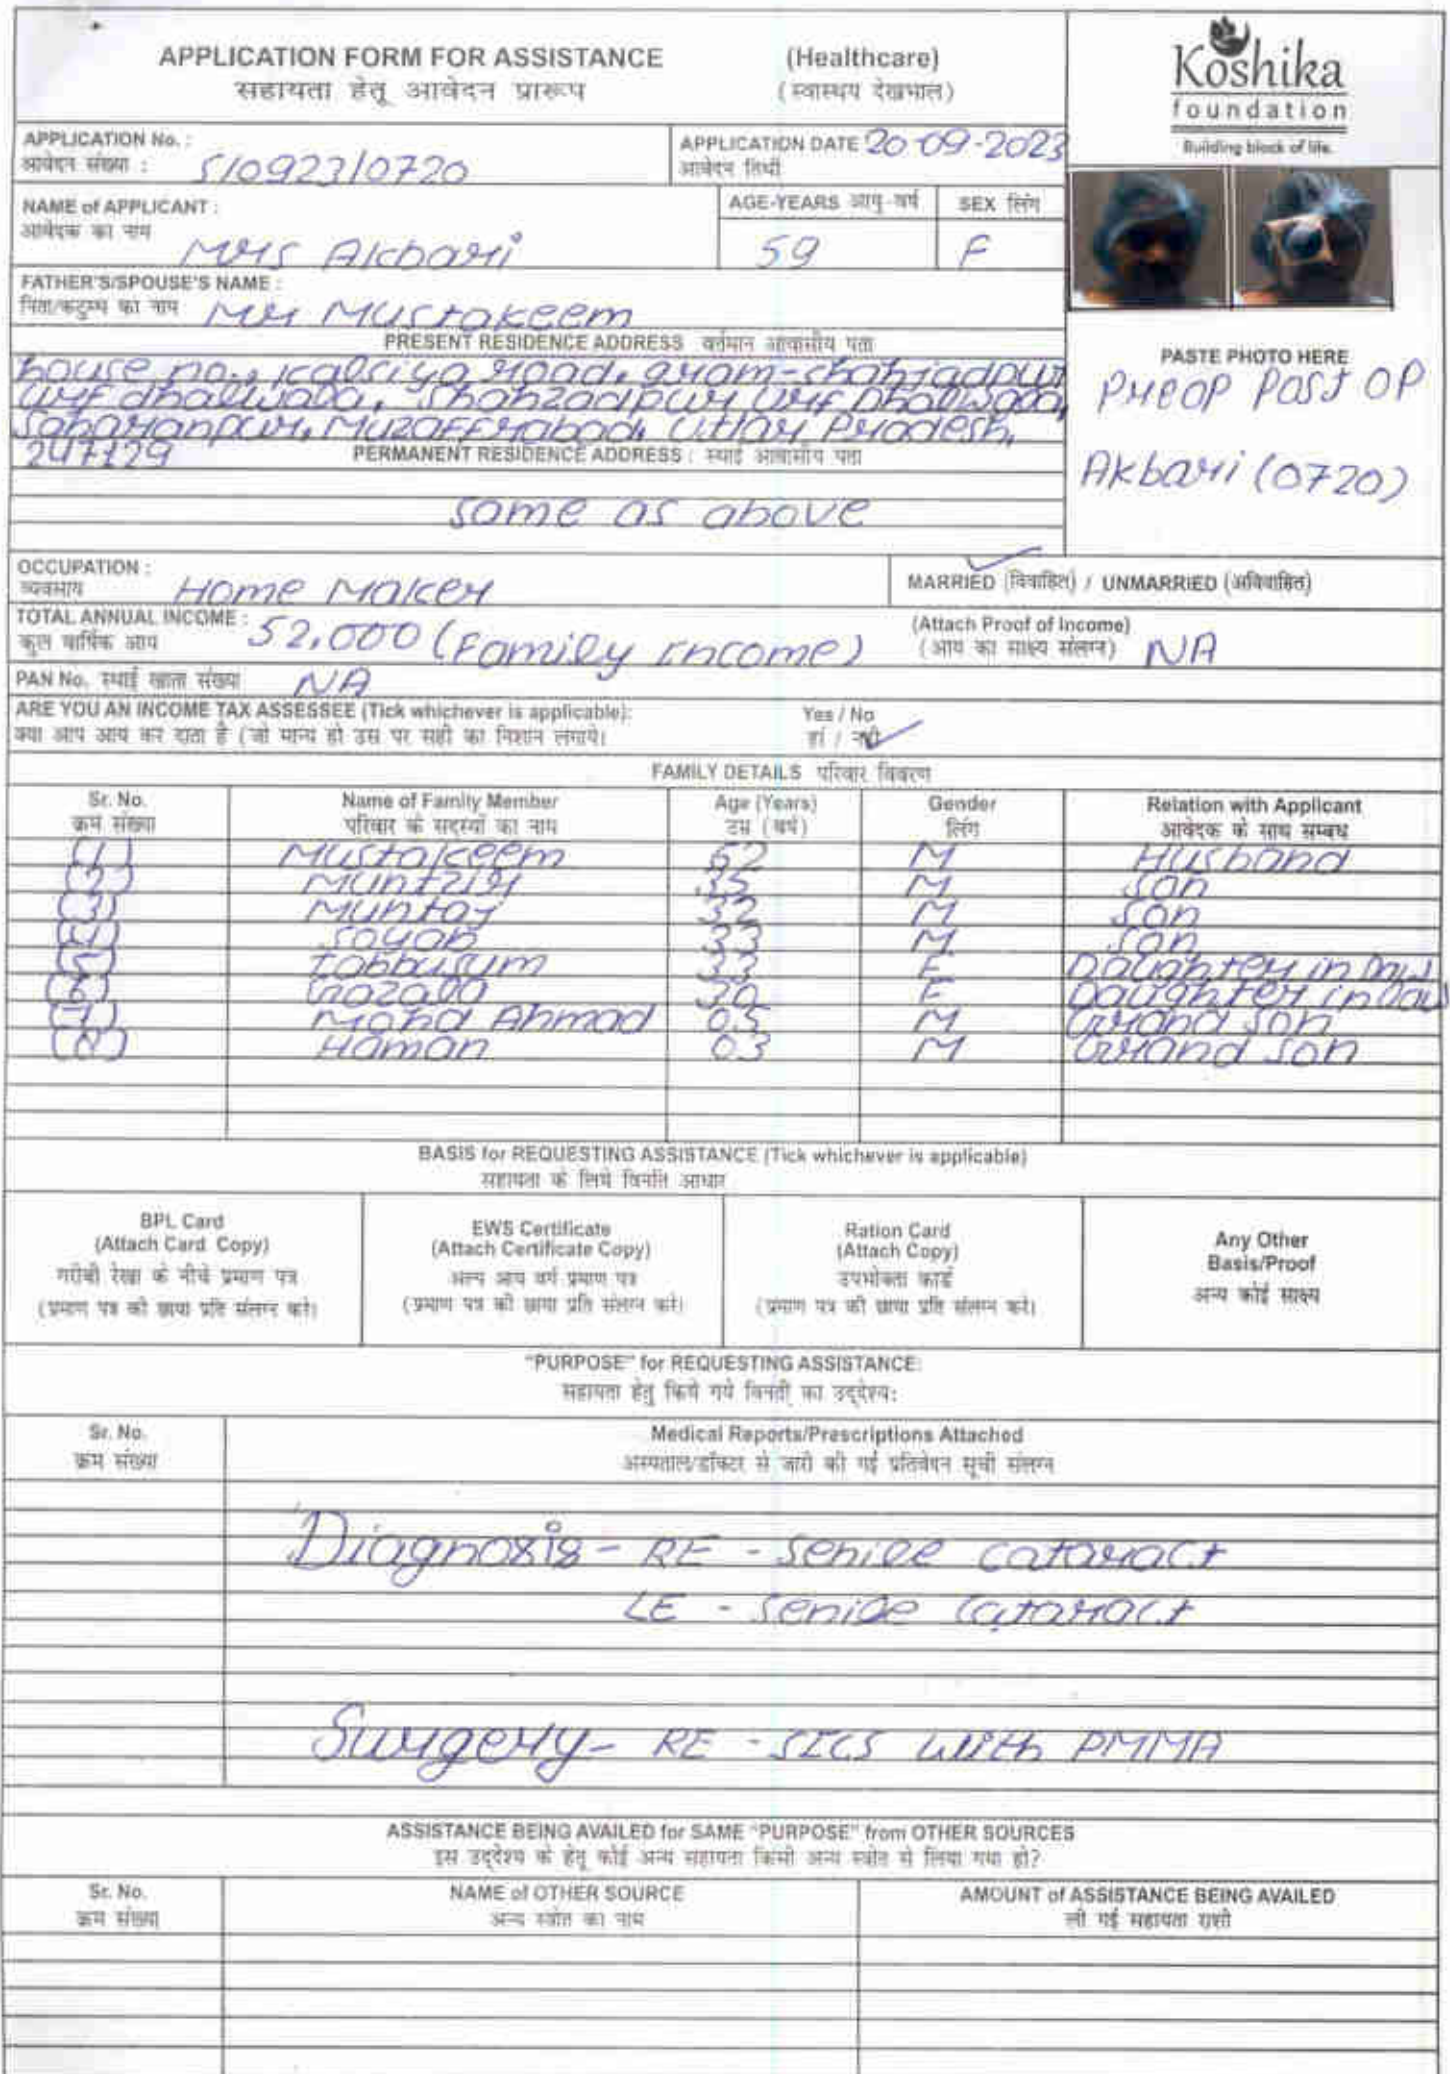 APPLICATION FORM FOR ASSISTANCE (Healthcare)
सहायता हेतू आवेदन प्रारूप (स्वास्थय देखभाल)
Koshika
foundation
Building block of life.
APPLICATION No. :
आवेदन संख्या : S/0923/0720
APPLICATION DATE 20-09-2023
आवेदन तिथी
NAME of APPLICANT :
आवेदक का नाम Mrs Akbari
AGE-YEARS आयु-वर्ष 59
SEX लिंग F
FATHER'S/SPOUSE'S NAME :
पिता/कटुम्ब का नाम Mr Mustakeem
PRESENT RESIDENCE ADDRESS वर्तमान आवासीय पता
house no., kalsiya road, gram-shahjadpur
urf dhallwala, Shahzadpur Urf Dhallwala,
Saharanpur, Muzaffrabad, Uttar Pradesh,
247129
PERMANENT RESIDENCE ADDRESS : स्थाई आवासीय पता
same as above
PASTE PHOTO HERE
Preop Post op
Akbari (0720)
OCCUPATION :
व्यवसाय Home Maker
MARRIED (विवाहित) / UNMARRIED (अविवाहित)
TOTAL ANNUAL INCOME :
कुल वार्षिक आय 52,000 (Family income)
(Attach Proof of Income)
(आय का साक्ष्य संलग्न) NA
PAN No. स्थाई खाता संख्या NA
ARE YOU AN INCOME TAX ASSESSEE (Tick whichever is applicable): Yes / No
क्या आप आय कर दाता है (जो मान्य हो उस पर सही का निशान लगाये। हां / नही
FAMILY DETAILS परिवार विवरण
Sr. No. Name of Family Member Age (Years) Gender Relation with Applicant
क्रम संख्या परिवार के सदस्यों का नाम उम्र (वर्ष) लिंग आवेदक के साथ सम्बध
(1) Mustakeem 62 M Husband
(2) Muntzir 35 M Son
(3) Muntay 32 M Son
(4) M Son
(5) Tabbusum 33 F Daughter in law
(6) 30 F Daughter in law
(7) Mohd Ahmad 05 M Grand son
(8) Haman 03 M Grand son
BASIS for REQUESTING ASSISTANCE (Tick whichever is applicable)
सहायता के लिये विनति आधार
BPL Card
(Attach Card Copy)
गरीबी रेखा के नीचे प्रमाण पत्र
(प्रमाण पत्र की छाया प्रति संलग्न करे।
EWS Certificate
(Attach Certificate Copy)
अल्प आय वर्ग प्रमाण पत्र
(प्रमाण पत्र की छाया प्रति संलग्न करे।
Ration Card
(Attach Copy)
उपभोक्ता कार्ड
(प्रमाण पत्र की छाया प्रति संलग्न करे।
Any Other
Basis/Proof
अन्य कोई साक्ष्य
"PURPOSE" for REQUESTING ASSISTANCE:
सहायता हेतु किये गये विनती का उद्देश्य:
Sr. No. Medical Reports/Prescriptions Attached
क्रम संख्या अस्पताल/डॉक्टर से जारी की गई प्रतिवेदन सूची संलग्न
Diagnosis - RE - Senile cataract
LE - Senile cataract
Surgery - RE - SICS with PMMA
ASSISTANCE BEING AVAILED for SAME "PURPOSE" from OTHER SOURCES
इस उद्देश्य के हेतू कोई अन्य सहायता किसी अन्य स्त्रोत से लिया गया हो?
Sr. No. NAME of OTHER SOURCE AMOUNT of ASSISTANCE BEING AVAILED
क्रम संख्या अन्य स्त्रोत का नाम ली गई सहायता राशी